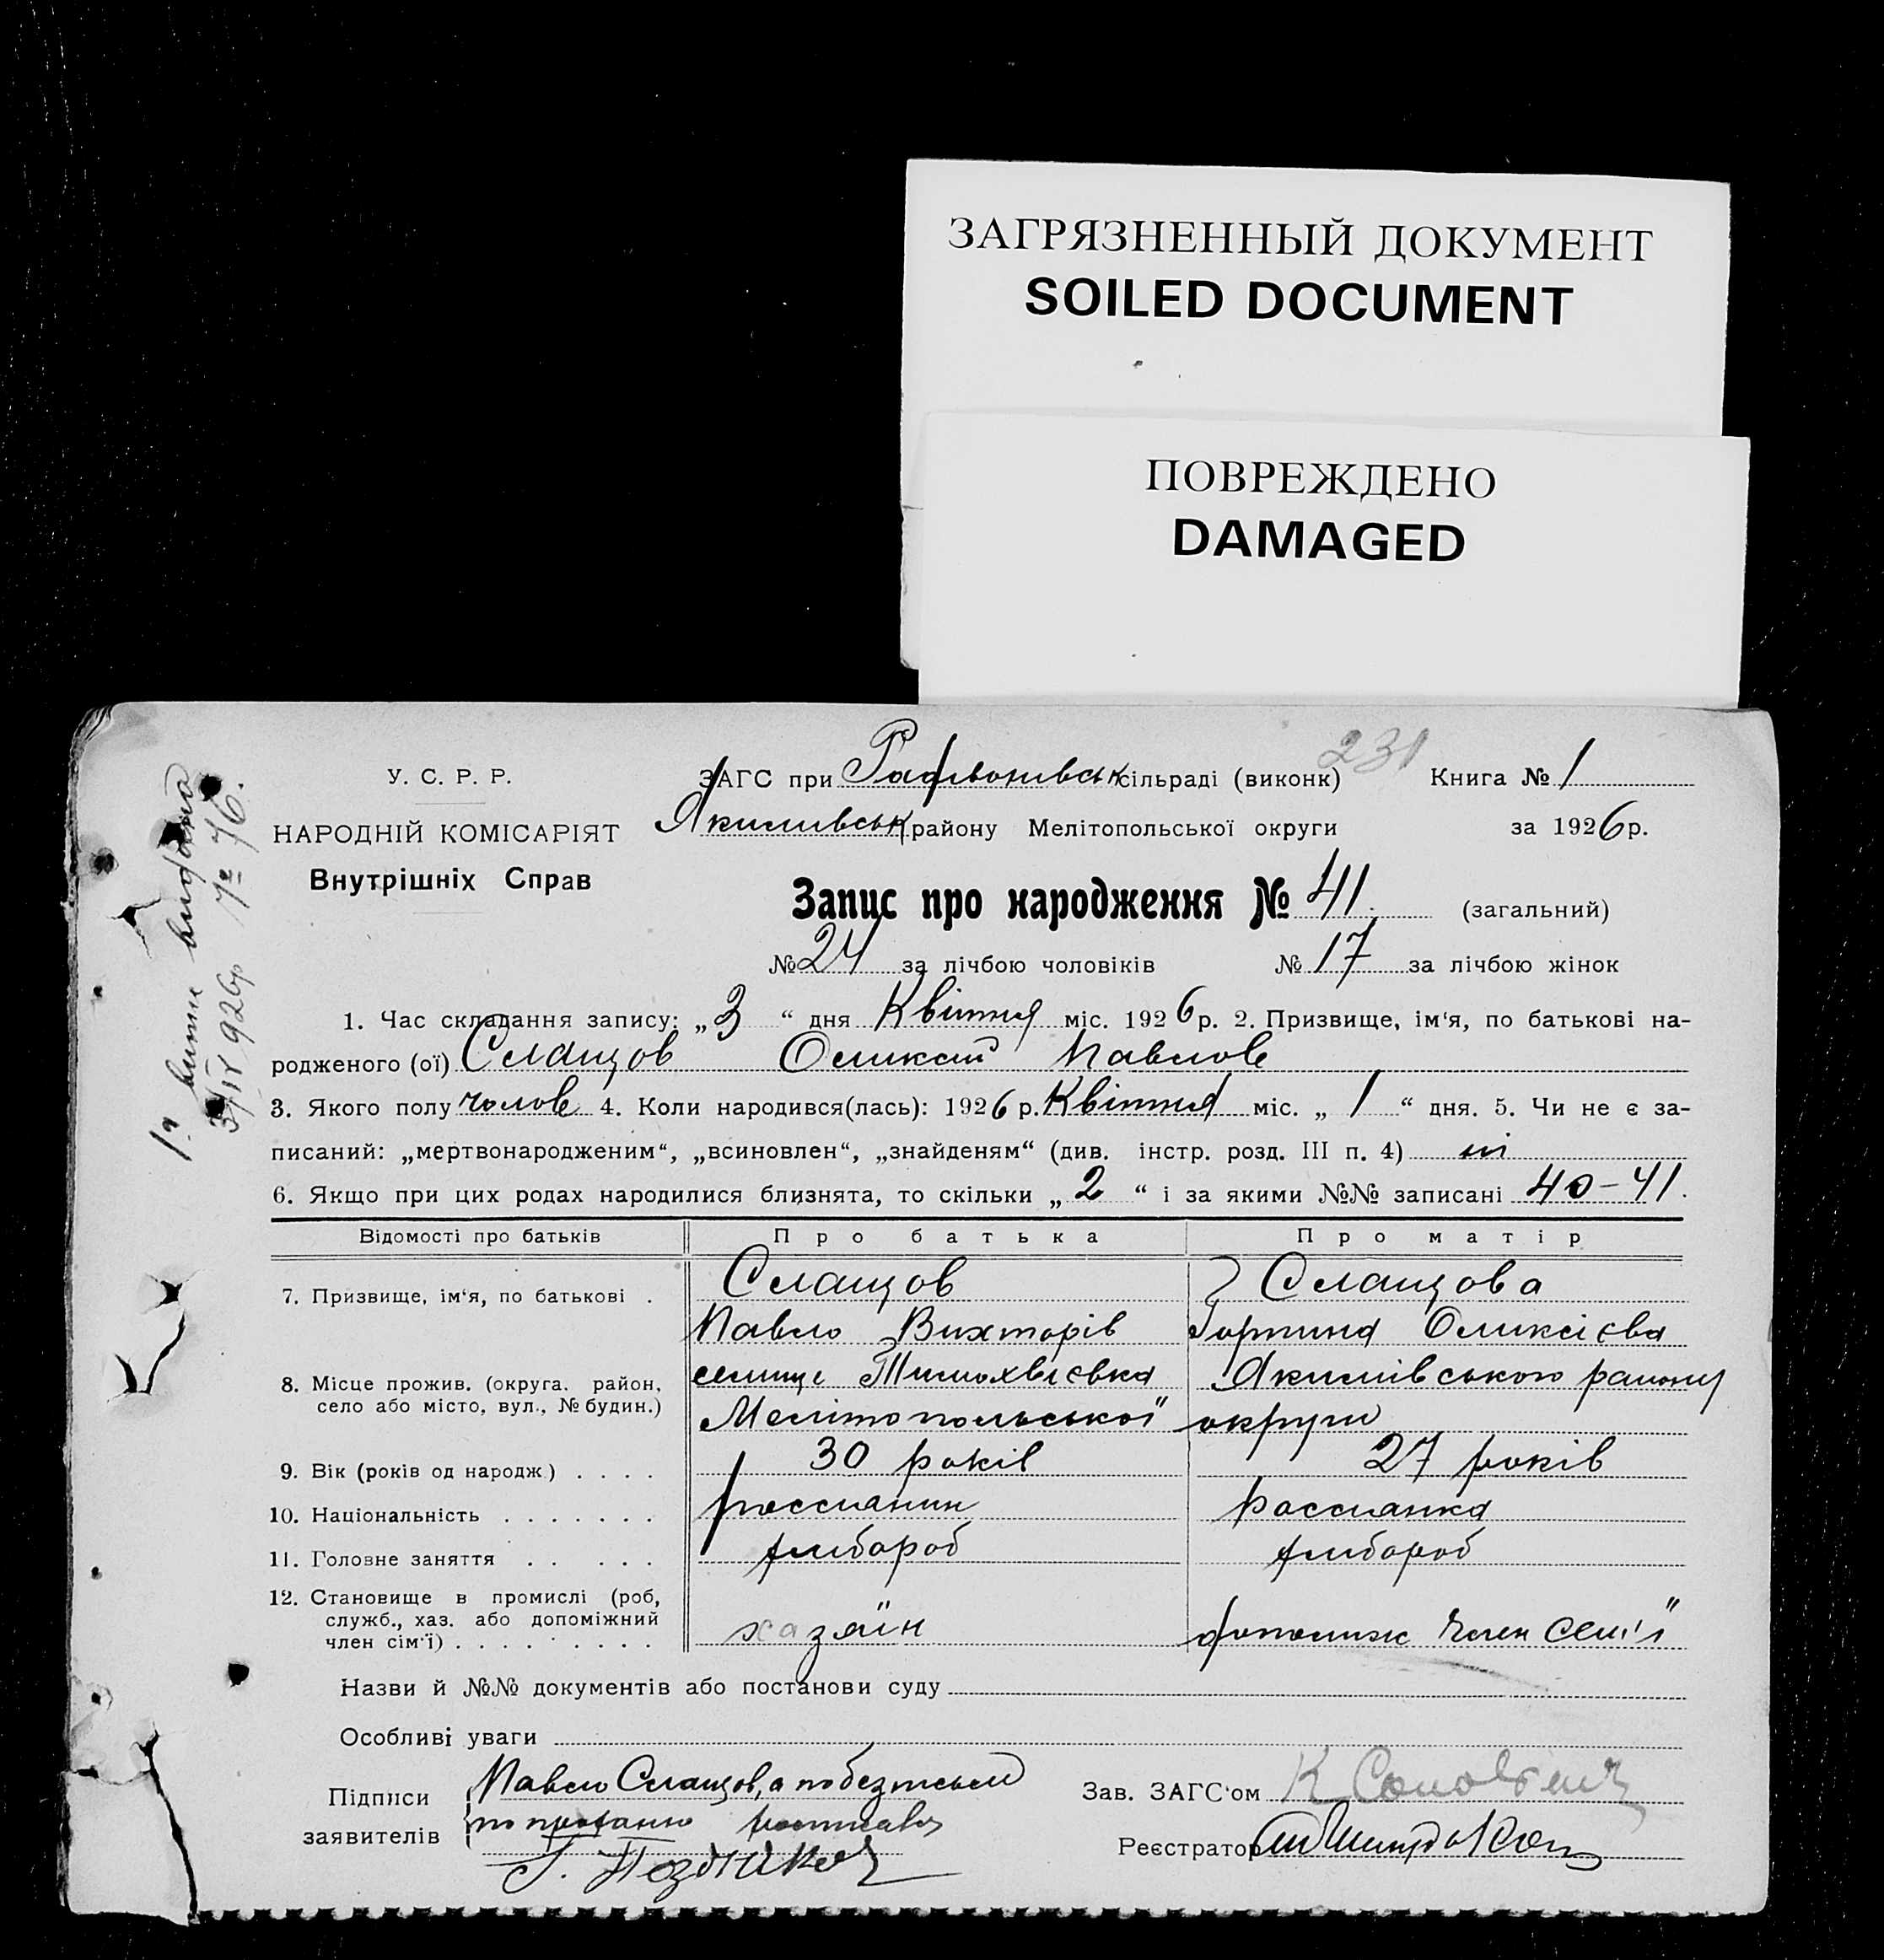 ЗАГРЯЗНЕННЫЙ ДОКУМЕНТ
SOILED DOCUMENT
ПОВРЕЖДЕНО
DAMAGED
231
У. С. Р. Р.
НАРОДНІЙ КОМІСАРІЯТ
Внутрішніх Справ
ЗАГС при сільраді (виконк) Книга № 1
Якимивськ району Мелітопольської округи за 1926 р.
Запис про народження № 41. (загальний)
№ 24 за лічбою чоловіків № 17 за лічбою жінок
1. Час складання запису: „3“ дня Квітня міс. 1926 р. 2. Призвище, ім'я, по батькові на-
родженого (ої) Слащов Оликсій Павлов
3. Якого полу чолов 4. Коли народився(лась): 1926 р. Квітня міс. „1“ дня. 5. Чи не є за-
писаний: „мертвонародженим“, „всиновлен“, „знайденям“ (див. інстр. розд. III п. 4) ні
6. Якщо при цих родах народилися близнята, то скільки „2“ і за якими №№ записані 40-41.
Відомості про батьків Про батька Про матір
7. Призвище, ім'я, по батькові . Слащов Слащова
Павло Вихторів Горпина Оликсієва
8. Місце прожив. (округа. район, село або місто, вул., № будин.) селище Тимохвієвка Якимівського району
Мелітопольської округи
9. Вік (років од народж.) . . . . 30 років 27 років
10. Національність . . . . . . . россианин россианка
11. Головне заняття . . . . . хлибороб хлибороб
12. Становище в промислі (роб, служб., хаз. або допоміжний член сім'ї) . . . . . . . . . хазяїн допомиж член семі'ї
Назви й №№ документів або постанови суду
Особливі уваги
Підписи заявителів Павло Слащов, а по
Зав. ЗАГС'ом К
Реєстратор
1й витяг видано
3/IV 926р № 76.